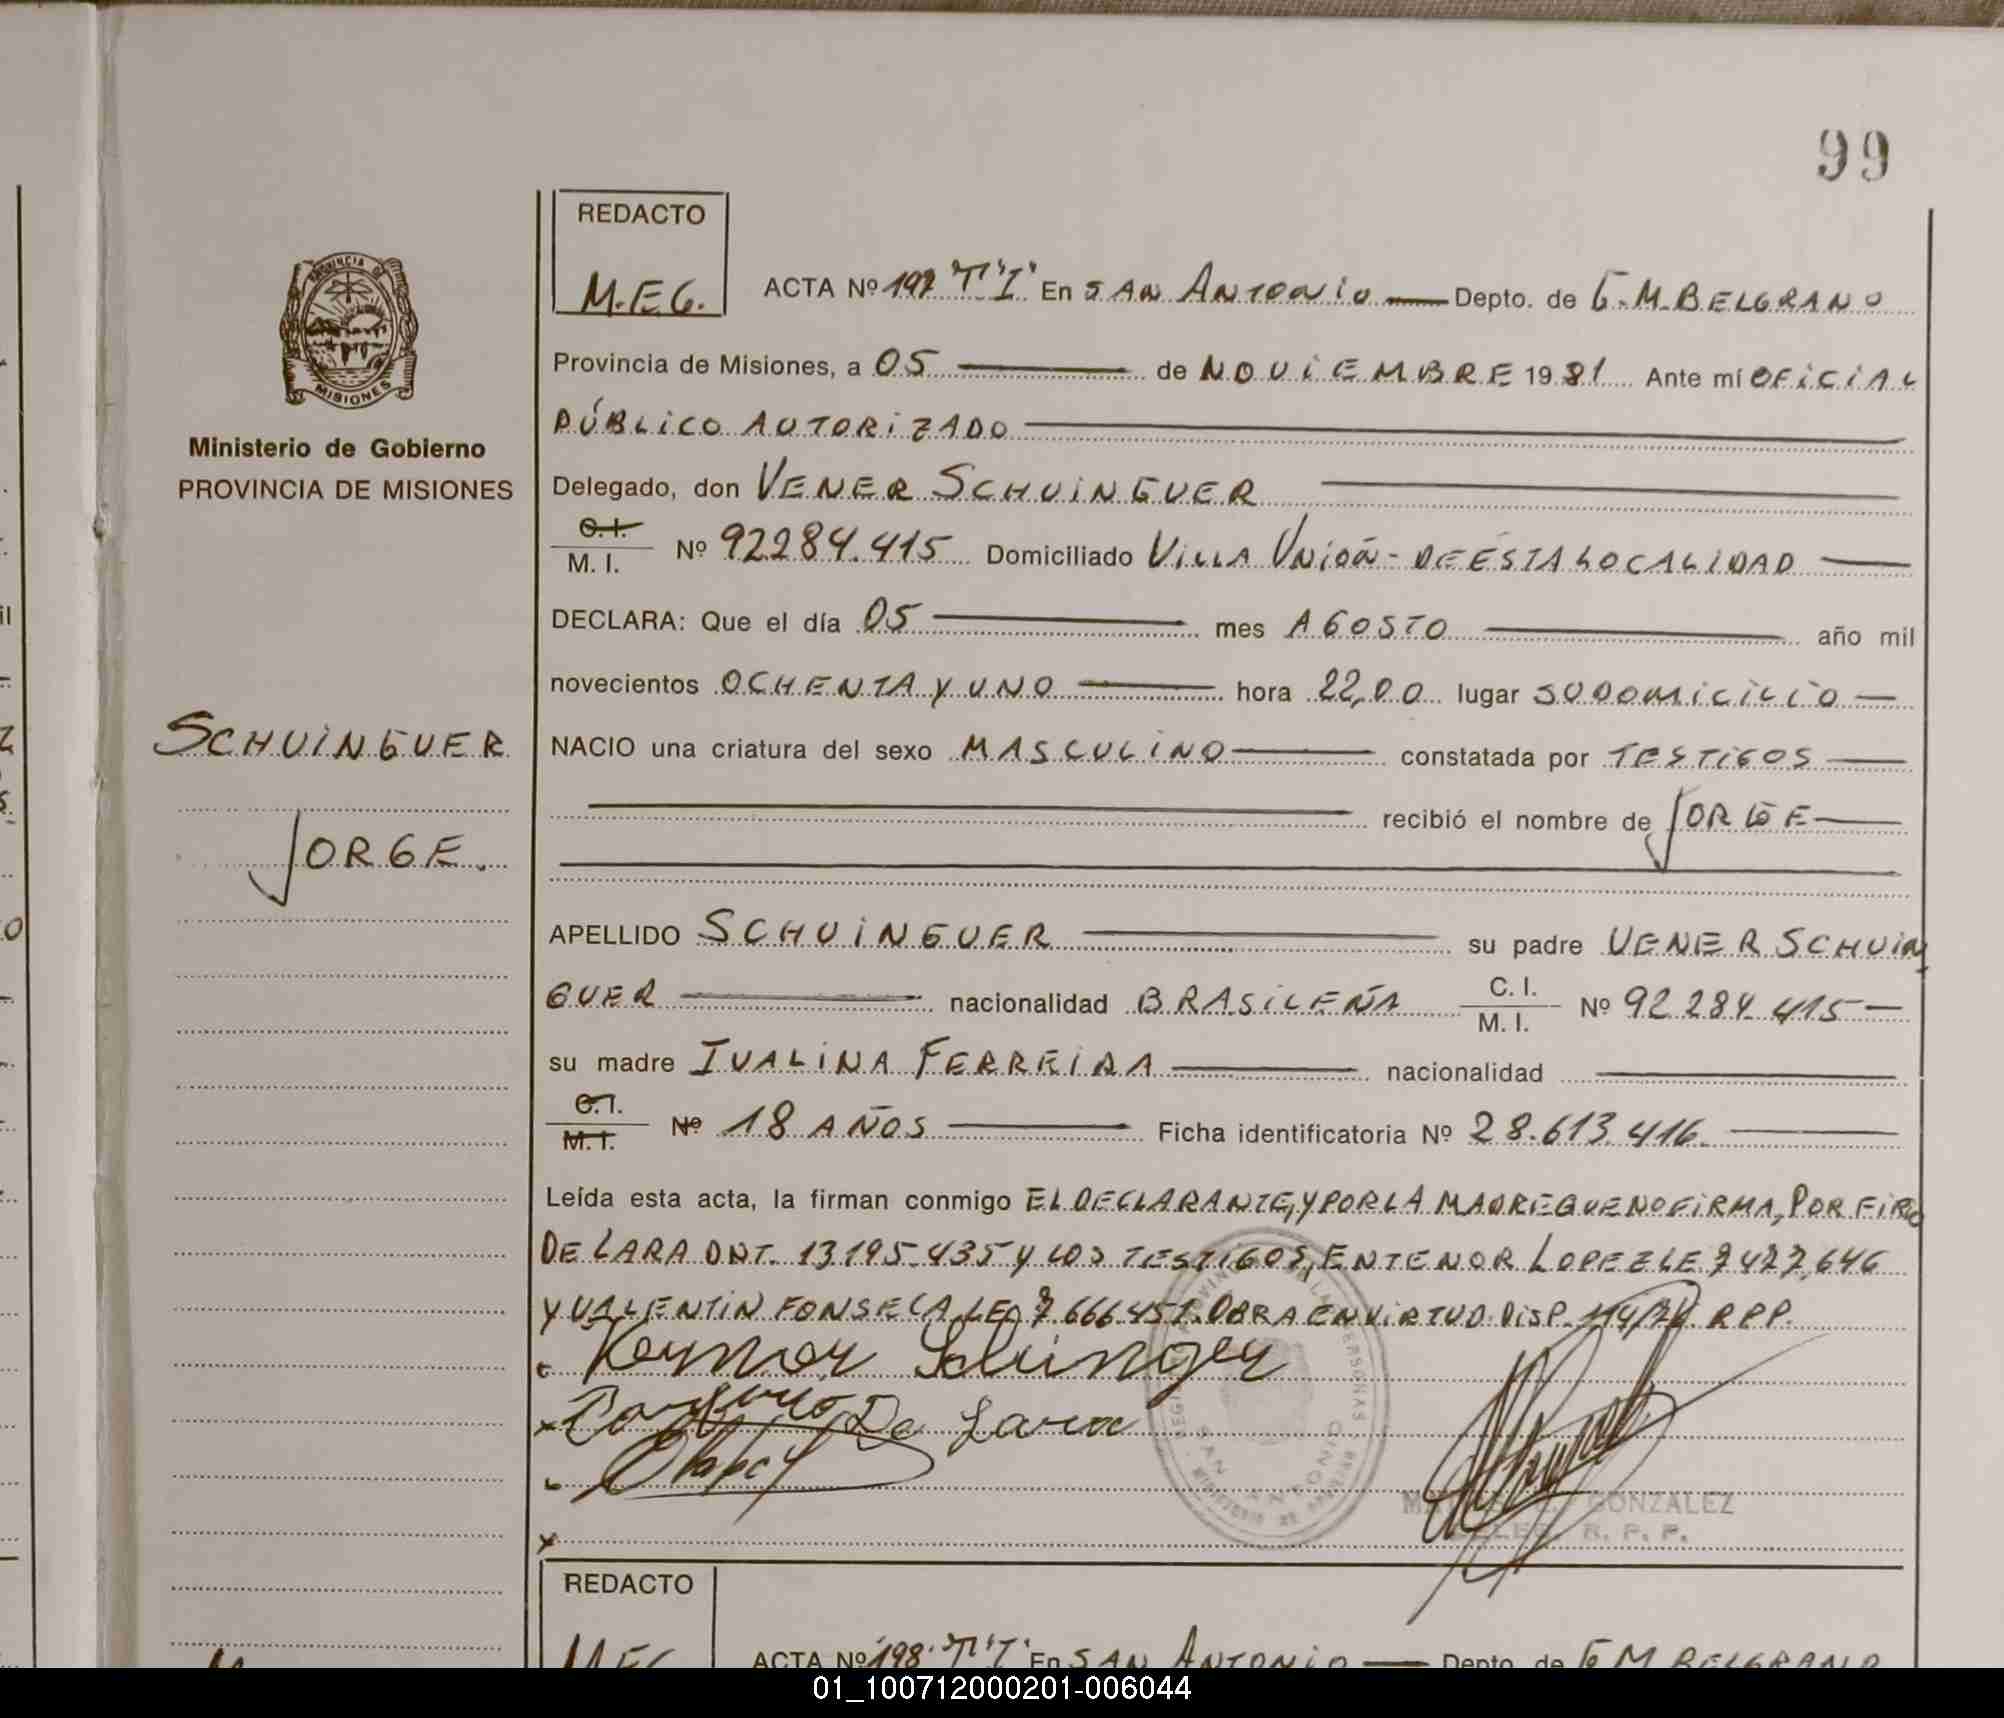 99
REDACTO
M.E.G.
ACTA Nº 197 "T" "I" En SAN ANTONIO Depto. de G.M.BELGRANO
PROVINCIA DE
MISIONES
Ministerio de Gobierno
PROVINCIA DE MISIONES
Provincia de Misiones, a 05 de NOVIEMBRE 1981 Ante mí OFICIAL
PÚBLICO AUTORIZADO
Delegado, don VENER SCHUINGUER
C.I.
M. I. Nº 92.284.415 Domiciliado VILLA UNIÓN - DE ESTA LOCALIDAD
DECLARA: Que el día 05 mes AGOSTO año mil
novecientos OCHENTA Y UNO hora 22,00 lugar SU DOMICILIO
SCHUINGUER
NACIO una criatura del sexo MASCULINO constatada por TESTIGOS
recibió el nombre de JORGE
JORGE.
APELLIDO SCHUINGUER su padre VENER SCHUIN
GUER nacionalidad BRASILEÑA C. I.
M. I. Nº 92.284.415
su madre IVALINA FERREIRA nacionalidad
C.I.
M.I. Nº 18 AÑOS Ficha identificatoria Nº 28.613.416.
Leída esta acta, la firman conmigo EL DECLARANTE, Y POR LA MADRE QUE NO FIRMA, PORFIRIO
DE LARA DNI. 13.195.435 Y LOS TESTIGOS, ENTENOR LOPEZ LE 7.477.646
Y VALENTIN FONSECA, LE 7.666.451. OBRA EN VIRTUD DISP. 114/74 R P P.
Schuinger
De Lara
SAN ANTONIO
GONZALEZ
R. P. P.
REDACTO
M.E.G.
ACTA Nº 198 "T" "I" En SAN ANTONIO Depto. de G M BELGRANO
01_100712000201-006044